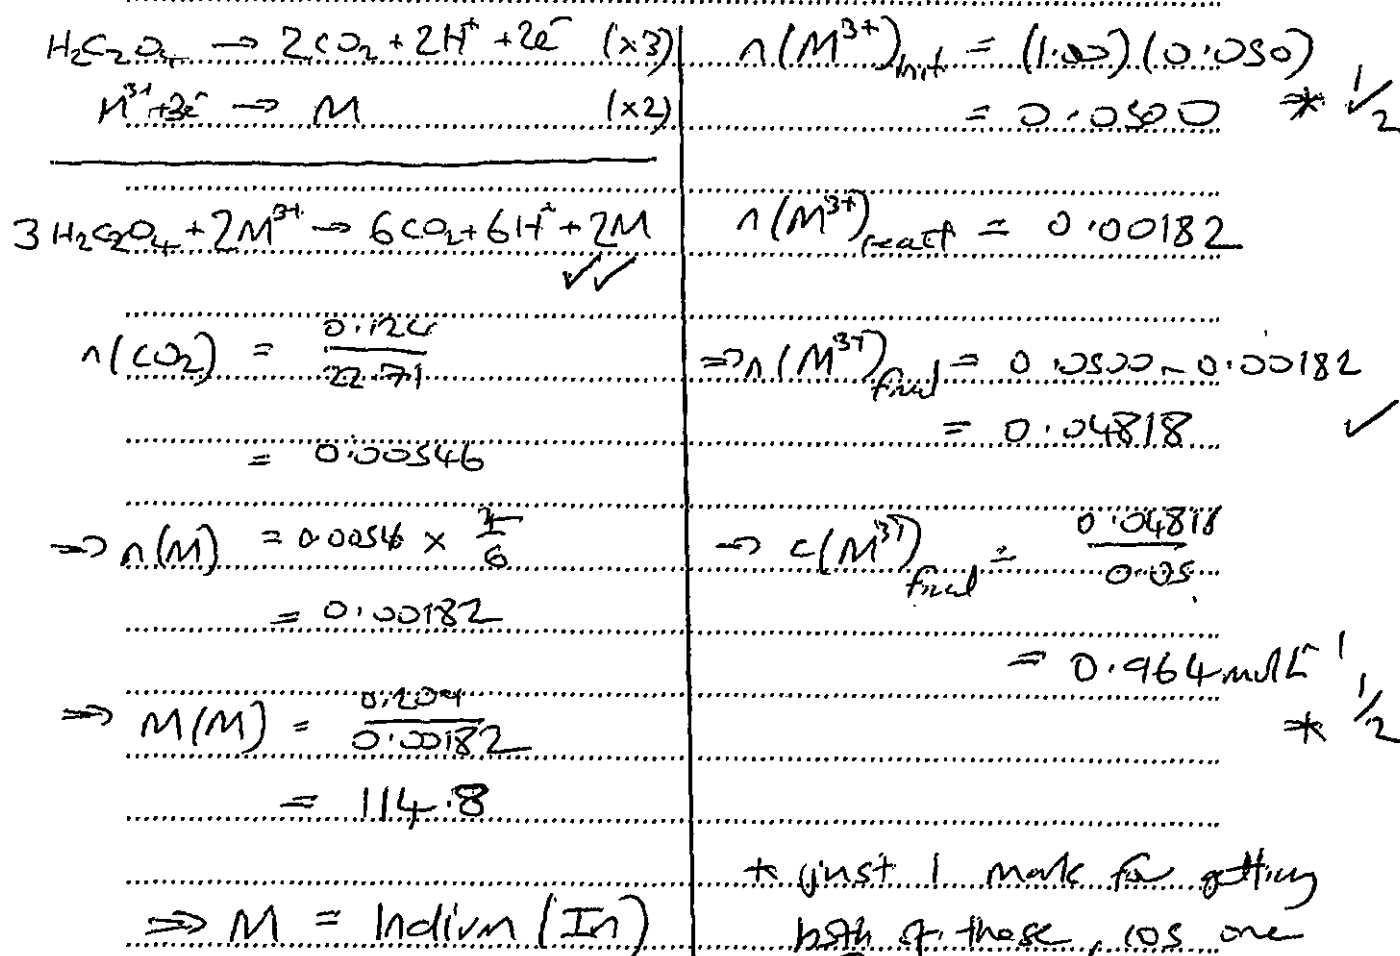 H₂C₂O₄ → 2CO₂ + 2H⁺ + 2e⁻ (×3)
M³⁺ + 3e⁻ → M (×2)
3H₂C₂O₄ + 2M³⁺ → 6CO₂ + 6H⁺ + 2M
✓✓
n(CO₂) = 0.124 / 22.71
= 0.00546
⇒ n(M) = 0.00546 × 2/6
= 0.00182
⇒ M(M) = 0.209 / 0.00182
= 114.8
⇒ M = Indium (In)
n(M³⁺)init = (1.00)(0.050)
= 0.0500 * ✓ 1/2
n(M³⁺)react = 0.00182
⇒ n(M³⁺)final = 0.0500 - 0.00182
= 0.04818 ✓
⇒ c(M³⁺)final = 0.04818 / 0.05
= 0.964 mol L⁻¹
* 1/2
* just 1 mark for getting
both of these, cos one